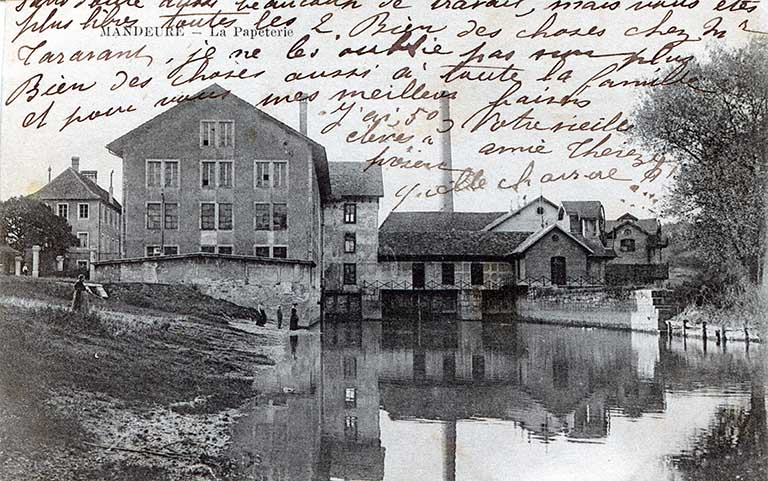 sans doute aussi beaucoup de travail, mais vous êtes
plus libres toutes les 2. Bien des choses chez Mr
MANDEURE – La Papeterie
Tararant, je ne les oublie pas non plus
Bien des choses aussi à toute la famille
et pour vous mes meilleurs baisers
J'ai 50 Votre vieille
élèves à amie Thérèze
présent
quelle charre